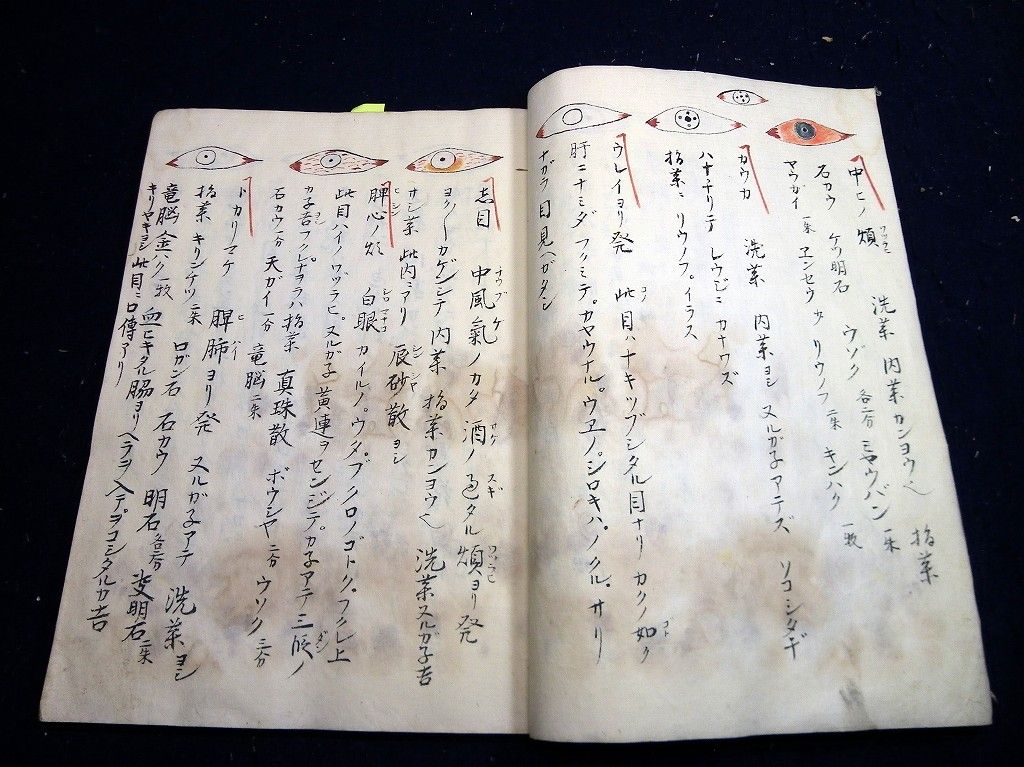 中ヒノ煩 洗薬 内薬カンヨウ也 指薬
石カウ ケツ明石 ウゾク 各二分 ミヤウバン 一朱
マウガイ 一朱 ヱンセウ 少 リウノフ 二朱 キンハク 一枚
カウカ 洗薬 内薬ヨシ 又ルガ子アテズ ソコシタギ
ハナチリテ レウヂニ カナワズ
指薬ニ リウノフ。イラス
ウレイヨリ発 此目ハナキツブシタル目ナリ カクノ如ク
肝ニナミダ フクミテ。カヤウナル。ウヱノ。シロキハ。ノクル。サリ
ナガラ目見ヘガタシ
志目 中風氣ノカタ 酒ノ過タル煩ヨリ発
ヨク〱カゲンシテ 内薬 指薬カンヨウ也 洗薬又ルガ子吉
サシ薬 此内ニアリ
脾心ノ煩 白眼 辰砂散ヨシ
此目ハイノワヅラヒ。又ルガ子 黄連ヲセンジテ。カ子アテ三版ノ
カイルノ。ウタ。ブクロノゴトク。フクレ上
カ子吉フクレナヲラハ指薬 真珠散 ボウシヤ 二分 ウソク 二分
石カウ 一分 天ガイ 一分 竜脳 二朱
トカリマケ 脾肺ヨリ発 又ルガ子アテ 洗薬ヨシ
指薬 キリンケツ 二朱 ロガン石 石カウ 明石 各二分 明石 二朱
竜脳 金ハク 一牧 血ヒキタル脇ヨリヘラヲ入テ。ヲコシタルカ吉
キリヤキヨシ 此目ニ口傳アリ